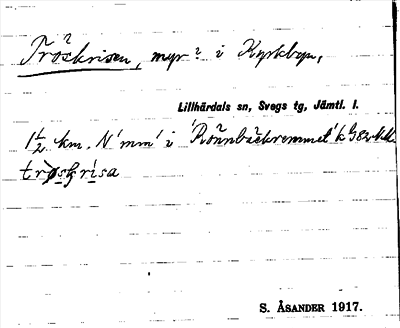 Tröskrisen, myr? i Kyrkbyn,
Lillhärdals sn, Svegs tg, Jämtl. l.
1½ km. N 'mm' i 'Rönnbäckremmet' k
trøskrisa
S. ÅSANDER 1917.